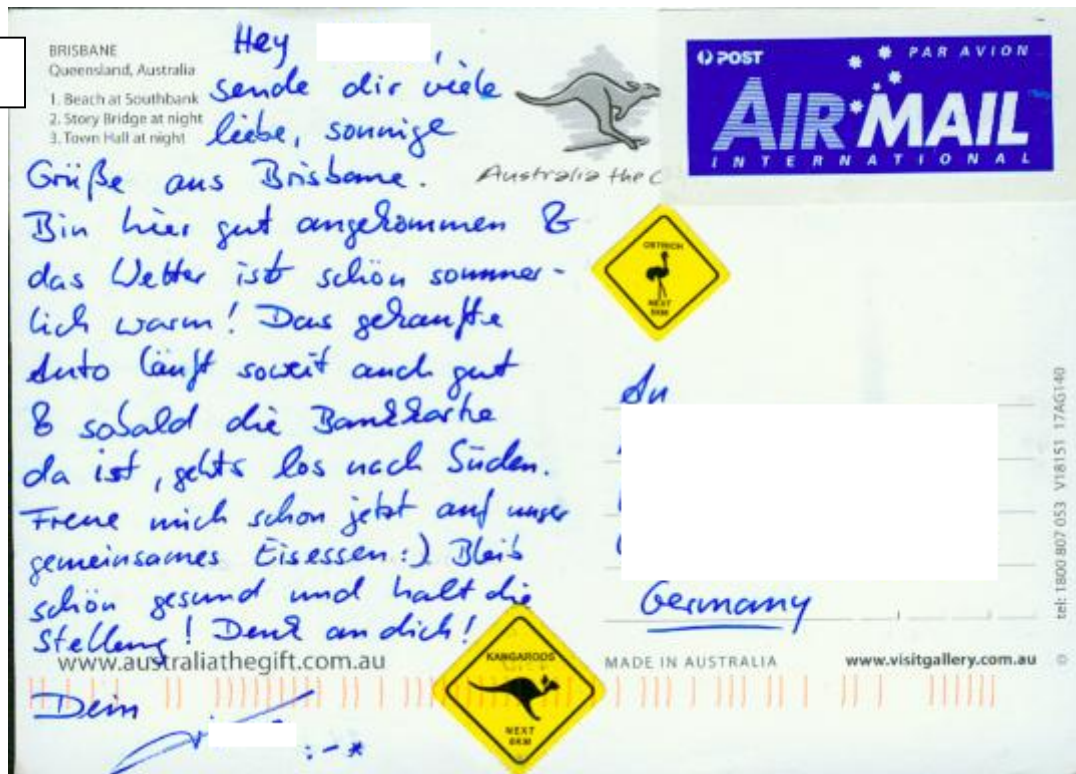 BRISBANE
Queensland, Australia
1. Beach at Southbank
2. Story Bridge at night
3. Town Hall at night
Hey ,
sende dir viele
liebe, sonnige
Grüße aus Brisbane.
Bin hier gut angekommen &
das Wetter ist schön sommer-
lich warm! Das gekaufte
Auto läuft soweit auch gut
& sobald die Bankkarte
da ist, gehts los nach Süden.
Freue mich schon jetzt auf unser
gemeinsames Eisessen :) Bleib
schön gesund und halt die
Stellung! Denk an dich!
www.australiathegift.com.au
Dein
:-*
Australia the G
POST
PAR AVION
AIR MAIL
INTERNATIONAL
OSTRICH
NEXT
5KM
An
Germany
KANGAROOS
NEXT
6KM
MADE IN AUSTRALIA
www.visitgallery.com.au ©
tel: 1800 807 053 V18151 17AG140